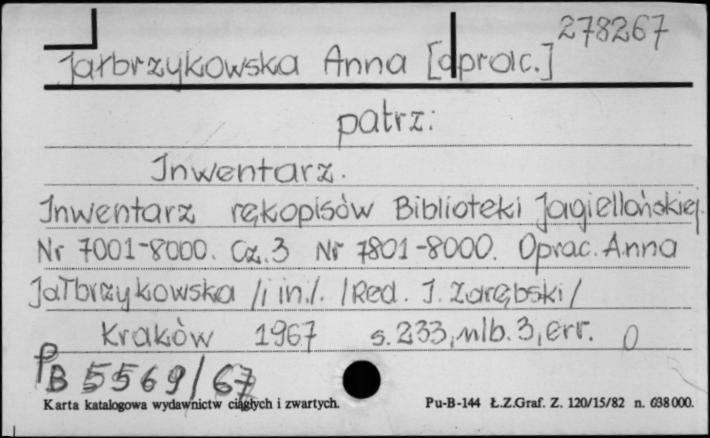 278267
Jałbrzykowska Anna [oprac.]
patrz:
Inwentarz.
Inwentarz rękopisów Biblioteki Jagiellońskiej.
Nr 7001-8000. Cz.3 Nr 7801-8000. Oprac. Anna
Jałbrzykowska /i in./. /Red. J. Zarębski/
Kraków 1967 s.233, nlb.3, err. 0
PB 5569/67
Karta katalogowa wydawnictw ciągłych i zwartych. Pu-B-144 Ł.Z.Graf. Z. 120/15/82 n. 638000.